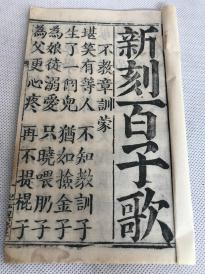 新刻百子歌
不教章訓蒙
堪笑有等人　不知教訓子
生了一個兒　猶如撿金子
為娘徒溺愛　只曉喂肥子
為父更心疼　再不提棍子